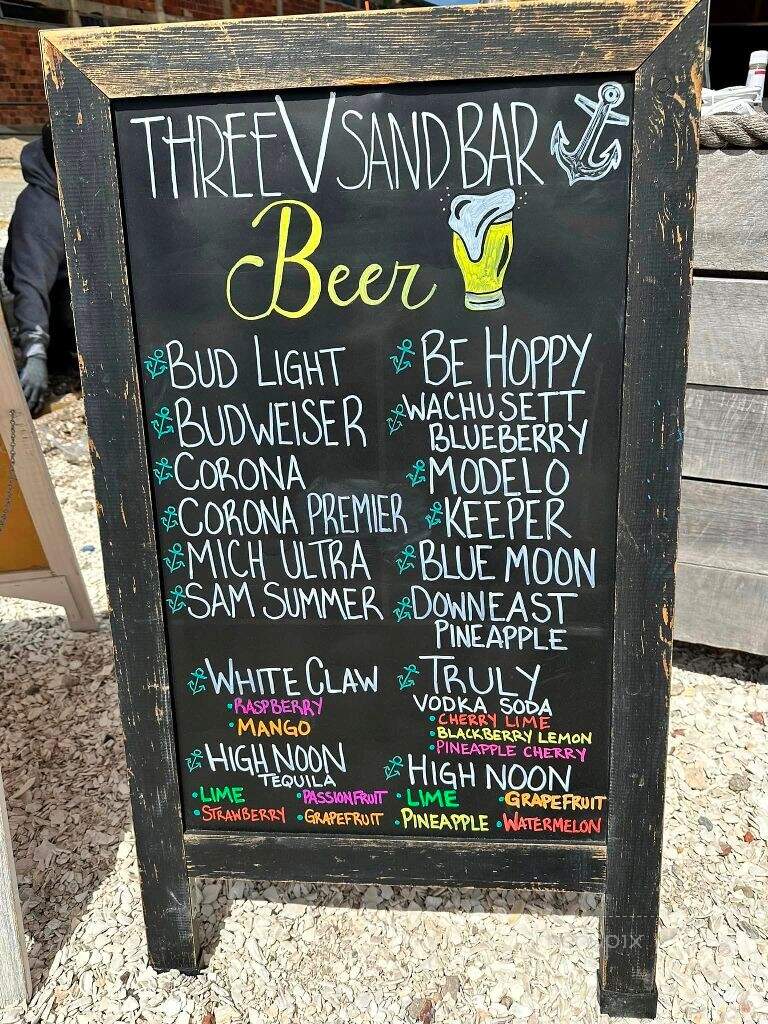 THREE V SAND BAR
Beer
BUD LIGHT
BUDWEISER
CORONA
CORONA PREMIER
MICH ULTRA
SAM SUMMER
BE HOPPY
WACHUSETT
BLUEBERRY
MODELO
KEEPER
BLUE MOON
DOWNEAST
PINEAPPLE
WHITE CLAW
RASPBERRY
MANGO
TRULY
VODKA SODA
CHERRY LIME
BLACKBERRY LEMON
PINEAPPLE CHERRY
HIGH NOON
TEQUILA
LIME PASSIONFRUIT
STRAWBERRY GRAPEFRUIT
HIGH NOON
LIME GRAPEFRUIT
PINEAPPLE WATERMELON